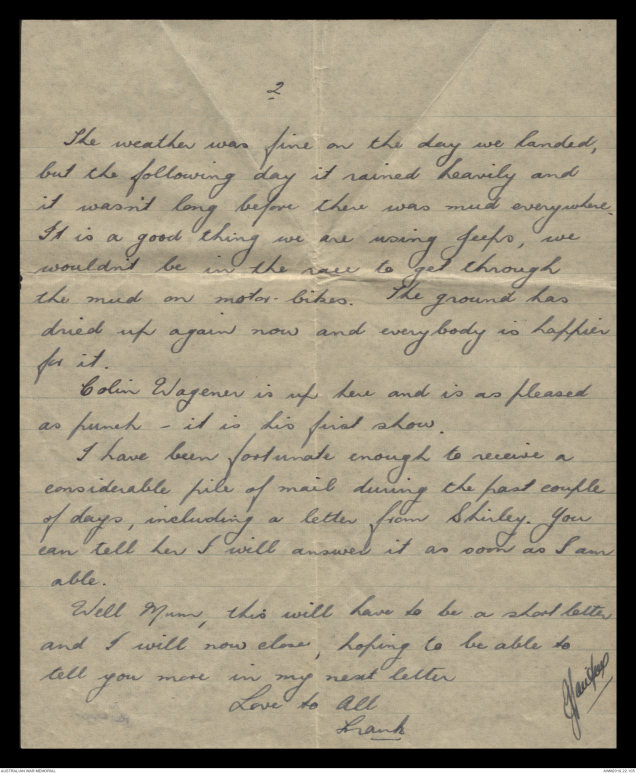 2
The weather was fine on the day we landed,
but the following day it rained heavily and
it wasn't long before there was mud everywhere.
It is a good thing we are using jeeps, we
wouldn't be in the race to get through
the mud on motor-bikes. The ground has
dried up again now and everybody is happier
for it.
Colin Wagener is up here and is as pleased
as punch - it is his first show.
I have been fortunate enough to receive a
considerable pile of mail during the past couple
of days, including a letter from Shirley. You
can tell her I will answer it as soon as I am
able.
Well Mum, this will have to be a short letter
and I will now close, hoping to be able to
tell you more in my next letter
Love to All
Frank
AUSTRALIAN WAR MEMORIAL